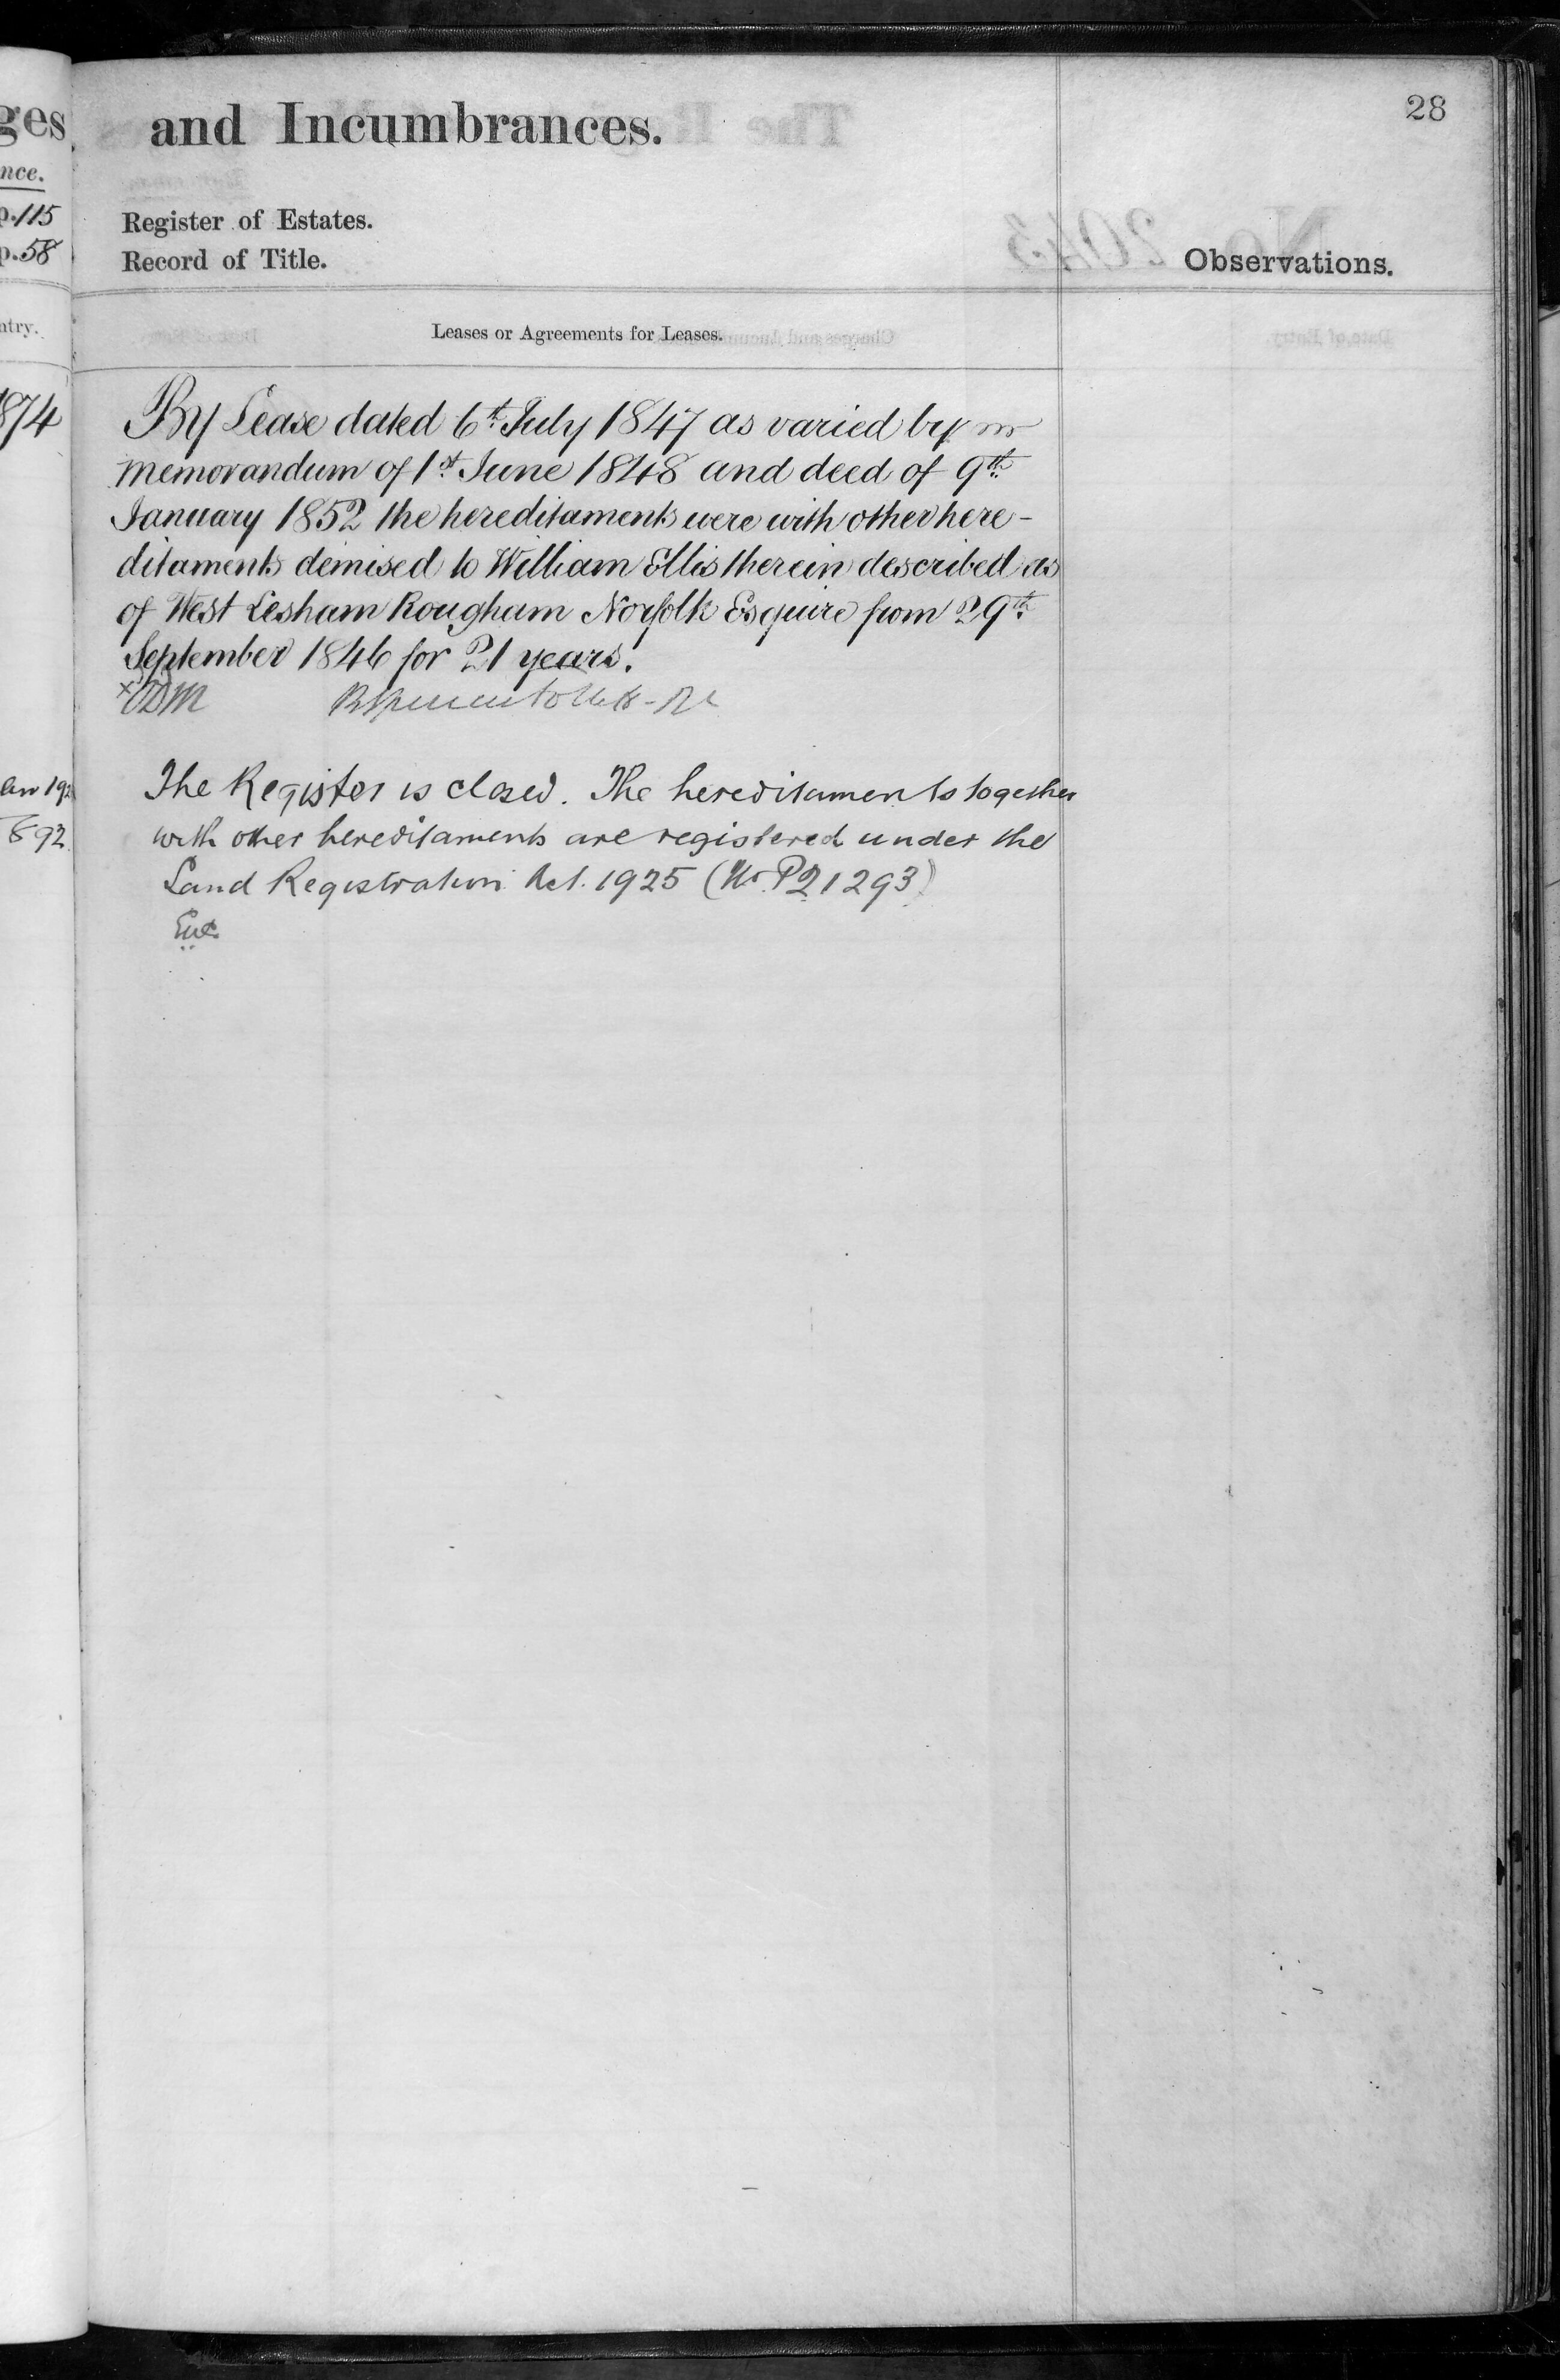 28
and Incumbrances.
Register of Estates.
Record of Title.
Observations.
Leases or Agreements for Leases.
By Lease dated 6th July 1847 as varied by
memorandum of 1st June 1848 and deed of 9th
January 1852 the hereditaments were with other here-
ditaments demised to William Ellis therein described as
of West Lesham Rougham Norfolk Esquire from 29th
September 1846 for 21 years.
The Register is closed. The hereditaments together
with other hereditaments are registered under the
Land Registration Act. 1925 (No. P21293)
ges
nce.
p. 115
p. 58
ntry.
1874
892